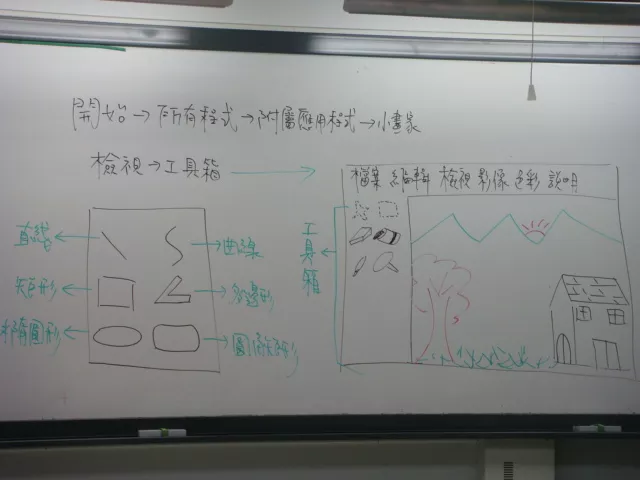 開始→所有程式→附屬應用程式→小畫家
檢視→工具箱
檔案 編輯 檢視 影像 色彩 說明
工具箱
直線
曲線
矩形
多邊形
橢圓形
圓角矩形